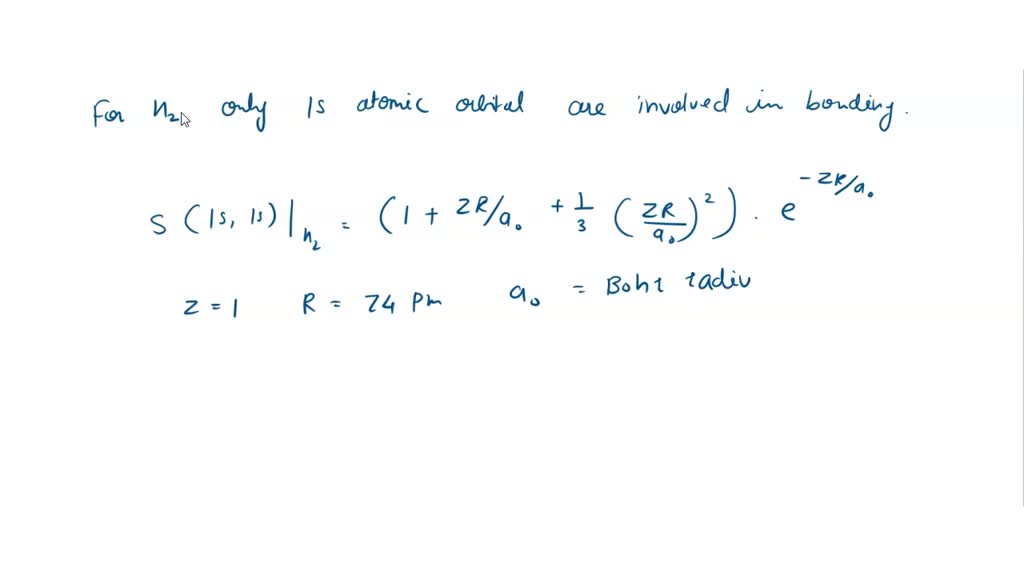 For H₂ only 1s atomic orbital are involved in bonding.
S (1s, 1s)|H₂ = (1 + ZR/a₀ + 1/3 (ZR/a₀)²) . e^-ZR/a₀
Z = 1 R = 74 Pm a₀ = Bohr radiu